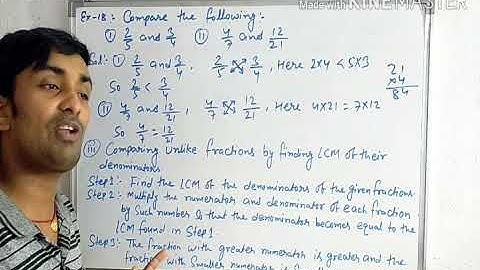 Made with KINEMASTER
Ex-18: Compare the following:
(i) 2/5 and 3/4 (ii) 4/7 and 12/21
Sol: (i) 2/5 and 3/4, 2/5 3/4, Here 2×4 < 5×3
So 2/5 < 3/4
21
×4
84
(ii) 4/7 and 12/21, 4/7 12/21, Here 4×21 = 7×12
So 4/7 = 12/21
(iii) Comparing Unlike fractions by finding LCM of their
denominators
Step 1:- Find the LCM of the denominators of the given fractions
Step 2:- Multiply the numerator and denominator of each fraction
by such number so that the denominator becomes equal to the
LCM found in Step 1.
Step 3:- The fraction with greater numerator is greater and the
fraction with smaller numerator is